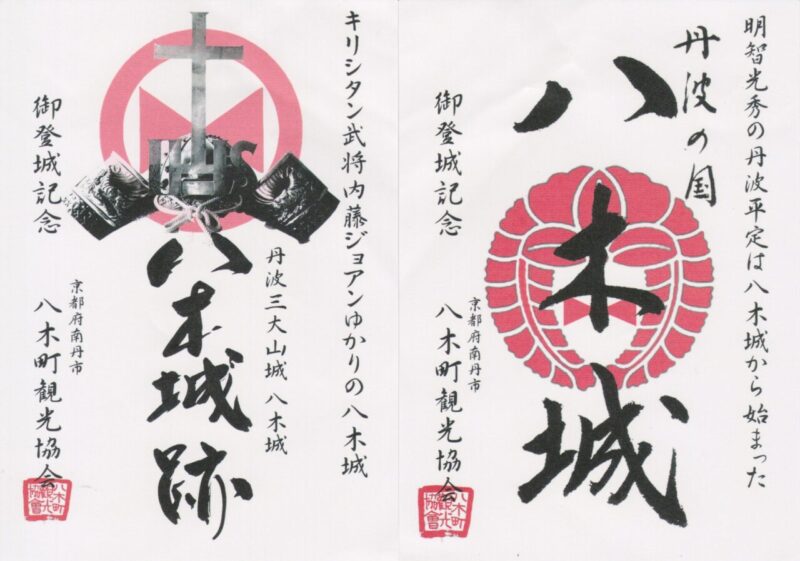 キリシタン武将内藤ジョアンゆかりの八木城
丹波三大山城 八木城
IHS
八木城跡
御登城記念
京都府南丹市
八木町観光協会
八木町観光協會
明智光秀の丹波平定は八木城から始まった
丹波の国
八木城
御登城記念
京都府南丹市
八木町観光協会
八木町観光協會